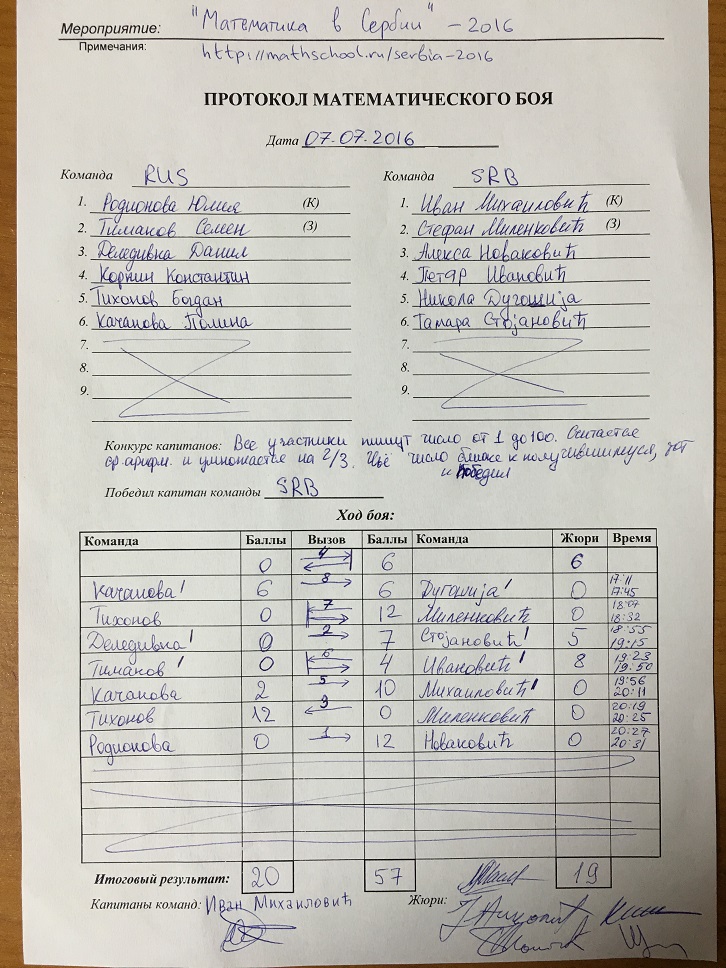 Мероприятие: "Математика в Сербии" - 2016
Примечания: http://mathschool.ru/serbia-2016
ПРОТОКОЛ МАТЕМАТИЧЕСКОГО БОЯ
Дата 07.07.2016
Команда RUS Команда SRB
1. Родионова Юлия (К) 1. Иван Михаиловић (К)
2. Тиманов Семен (З) 2. Стефан Миленковић (З)
3. Деледивка Данил 3. Алекса Новаковић
4. Корнин Константин 4. Петар Ивановић
5. Тихонов Богдан 5. Никола Дугошија
6. Качанова Полина 6. Тамара Стојановић
7. 7.
8. 8.
9. 9.
Конкурс капитанов: Все участники пишут число от 1 до 100. Считается
ср. арифм. и умножается на 2/3. Чьё число ближе к получившемуся, тот
и победил
Победил капитан команды SRB
Ход боя:
Команда Баллы Вызов Баллы Команда Жюри Время
0 4 6 6
Качанова! 6 8 6 Дугошија! 0 17:11 17:45
Тихонов 0 7 12 Миленковић 0 18:07 18:32
Деледивка! 0 2 7 Стојановић! 5 18:55 19:15
Тиманов! 0 6 4 Ивановић! 8 19:23 19:50
Качанова 2 5 10 Михаиловић! 0 19:56 20:11
Тихонов 12 3 0 Миленковић 0 20:19 20:25
Родионова 0 1 12 Новаковић 0 20:27 20:31
Итоговый результат: 20 57 19
Капитаны команд: Иван Михаиловић Жюри: